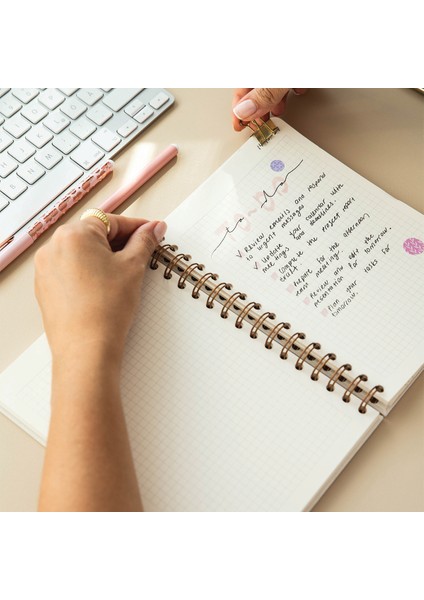 to do
✓ Review emails and respond
to messages
✓ Update your calendar with
meetings and deadlines.
Complete the project more
Prepare for the afternoon
team meeting.
Review and the
presentation for tomorrow.
Plan your tasks for
tomorrow.